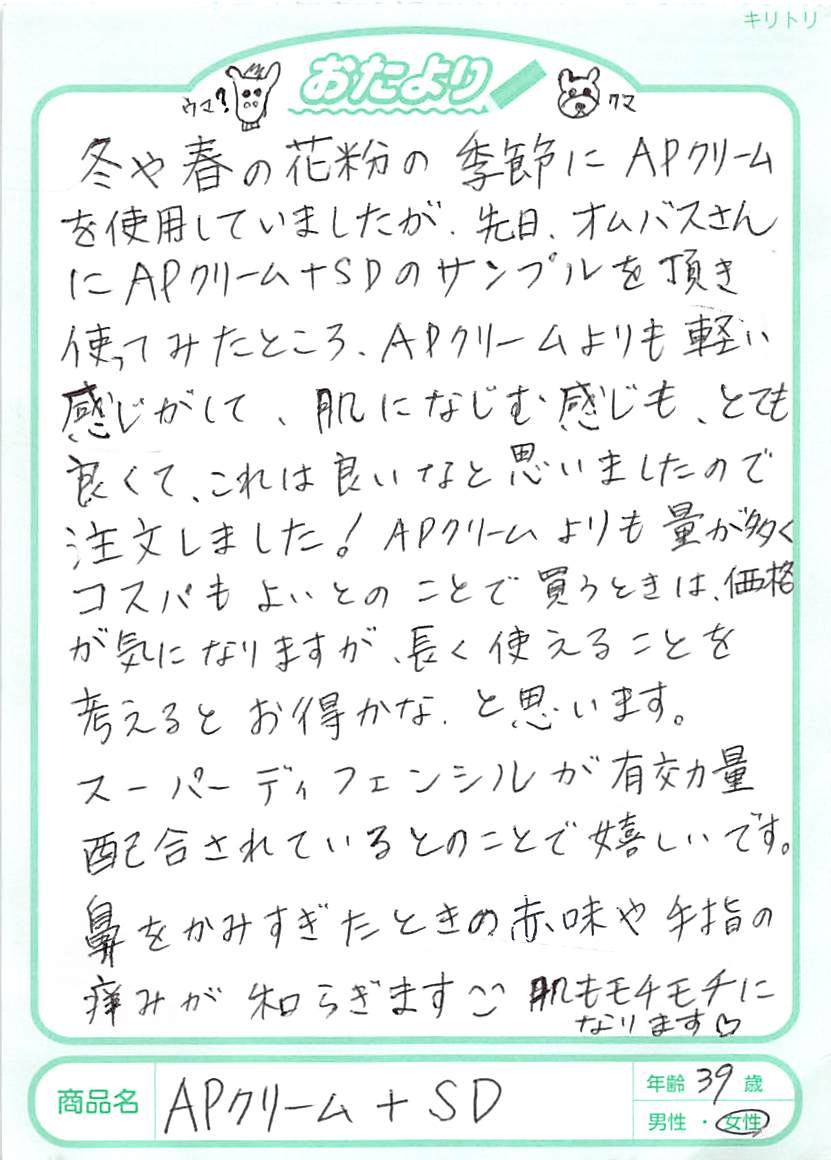 キリトリ
ウマ? おたより クマ
冬や春の花粉の季節にAPクリーム
を使用していましたが、先日、オムバスさん
にAPクリーム+SDのサンプルを頂き
使ってみたところ、APクリームよりも軽い
感じがして、肌になじむ感じも、とても
良くて、これは良いなと思いましたので
注文しました!APクリームよりも量が多く
コスパもよいとのことで買うときは、価格
が気になりますが、長く使えることを
考えるとお得かな、と思います。
スーパーディフェンシルが有効力量
配合されているとのことで嬉しいです。
鼻をかみすぎたときの赤味や手指の
痒みが和らぎます 肌もモチモチに
なります♡
商品名 APクリーム+SD
年齢 39 歳
男性・女性